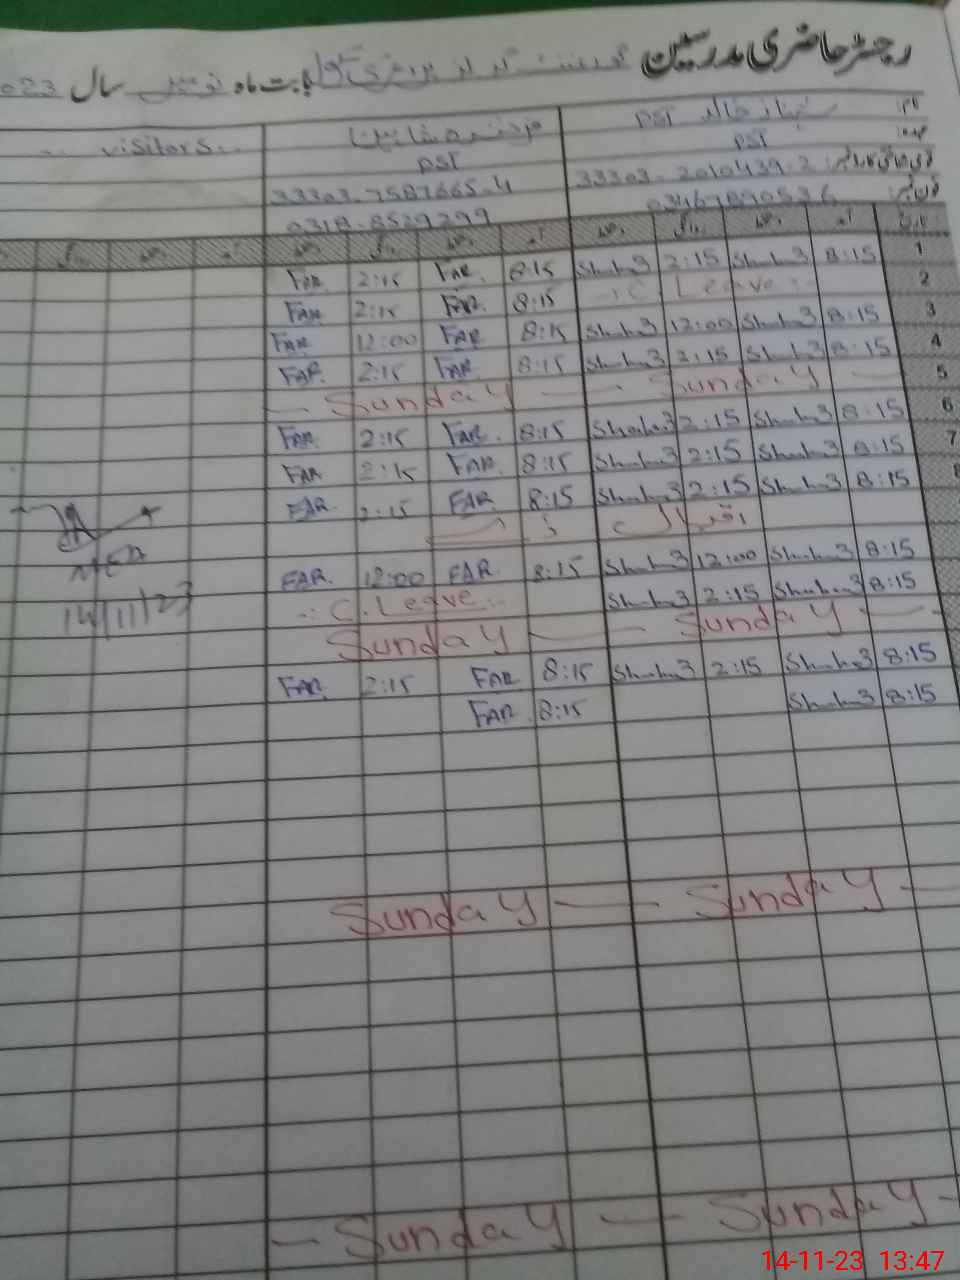 رجسٹر حاضری مدرسین گورنمنٹ گرلز پرائمری سکول بابت ماہ نومبر سال 2023
نام: شہناز خالد PST visitors
عہدہ: PST PST
شناختی کارڈ نمبر: 33303-2010439-2 33303-7587665-4
فون نمبر: 03467890536 0318-8529299
تاریخ آمد دستخط روانگی دستخط آمد دستخط روانگی دستخط آمد دستخط روانگی
1 8:15 Shah3 2:15 Shah3 8:15 FAR. 2:15 FAR.
2 C Leave 8:15 FAR. 2:15 FAR
3 8:15 Shah3 12:00 Shah3 8:15 FAR 12:00 FAR
4 8:15 Shah3 2:15 Shah3 8:15 FAR. 2:15 FAR.
5 Sunday Sunday
6 8:15 Shah3 2:15 Shah3 8:15 FAR. 2:15 FAR.
7 8:15 Shah3 2:15 Shah3 8:15 FAR. 2:15 FAR
8 8:15 Shah3 2:15 Shah3 8:15 FAR 2:15 FAR.
اقبال ڈے
8:15 Shah3 12:00 Shah3 8:15 FAR 12:00 FAR.
8:15 Shah3 2:15 Shah3 C. Leave
Sunday Sunday
8:15 Shah3 2:15 Shah3 8:15 FAR 2:15 FAR.
8:15 Shah3 8:15 FAR
MEA
14/11/23
Sunday Sunday
Sunday Sunday
14-11-23 13:47